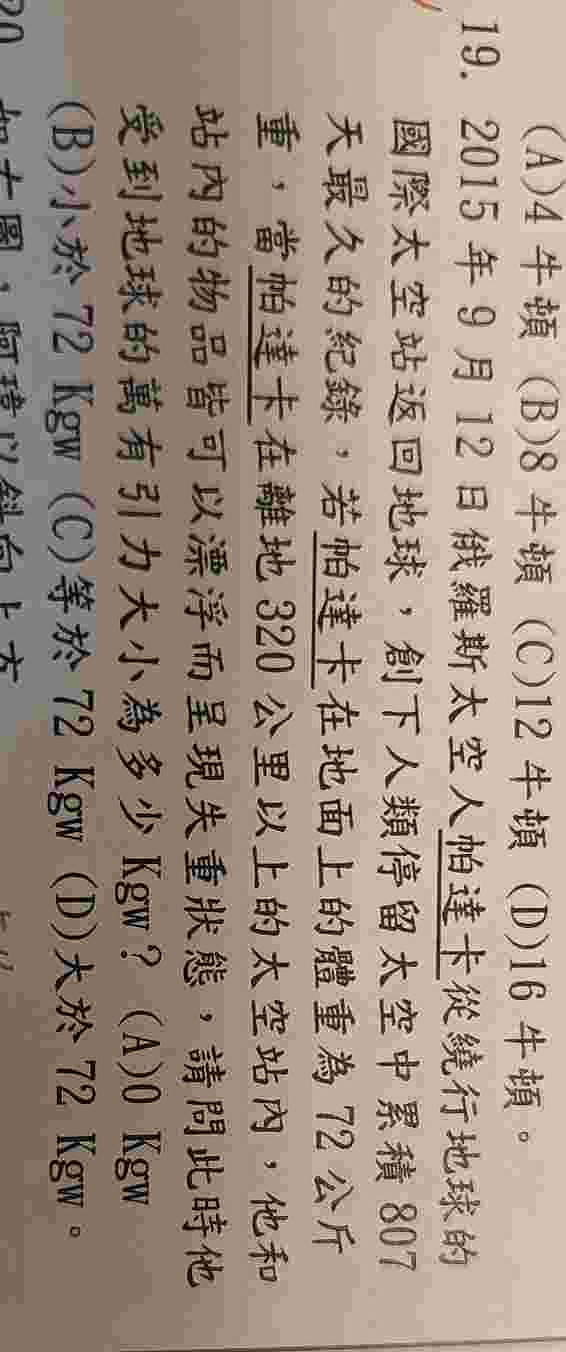 (A)4 牛頓 (B)8 牛頓 (C)12 牛頓 (D)16 牛頓。
19. 2015 年 9 月 12 日俄羅斯太空人帕達卡從繞行地球的
國際太空站返回地球,創下人類停留太空中累積 807
天最久的紀錄,若帕達卡在地面上的體重為 72 公斤
重,當帕達卡在離地 320 公里以上的太空站內,他和
站內的物品皆可以漂浮而呈現失重狀態,請問此時他
受到地球的萬有引力大小為多少 Kgw? (A)0 Kgw
(B)小於 72 Kgw (C)等於 72 Kgw (D)大於 72 Kgw。
20